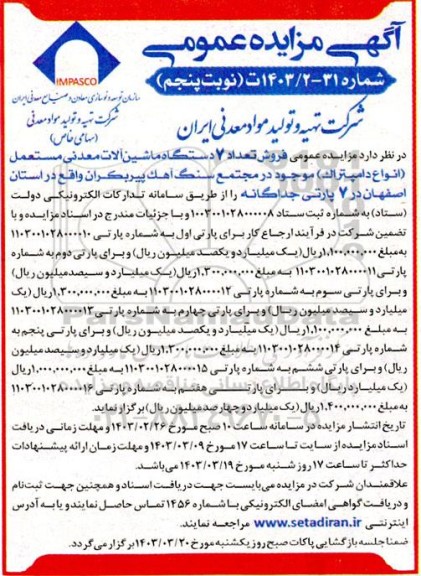 آگهی مزایده عمومی
شماره ۳۱-۱۴۰۳/۲ت (نوبت پنجم)
IMPASCO
سازمان توسعه و نوسازی معادن و صنایع معدنی ایران
شرکت تهیه و تولید مواد معدنی
(سهامی خاص)
شرکت تهیه و تولید مواد معدنی ایران
در نظر دارد مزایده عمومی فروش تعداد ۷ دستگاه ماشین‌آلات معدنی مستعمل
(انواع دامپتراک) موجود در مجتمع سنگ آهک پیربکران واقع در استان
اصفهان در ۷ پارتی جداگانه را از طریق سامانه تدارکات الکترونیکی دولت
(ستاد) به شماره ثبت ستاد ۱۰۰۳۰۰۱۰۲۸۰۰۰۰۰۸ و با جزئیات مندرج در اسناد مزایده و با
تضمین شرکت در فرآیند ارجاع کار برای پارتی اول به شماره پارتی ۱۱۰۳۰۰۱۰۲۸۰۰۰۰۱۰
به مبلغ ۱.۱۰۰.۰۰۰.۰۰۰ ریال (یک میلیارد و یکصد میلیون ریال) و برای پارتی دوم به شماره
پارتی ۱۱۰۳۰۰۱۰۲۸۰۰۰۰۱۱ به مبلغ ۱.۳۰۰.۰۰۰.۰۰۰ ریال (یک میلیارد و سیصد میلیون ریال)
و برای پارتی سوم به شماره پارتی ۱۱۰۳۰۰۱۰۲۸۰۰۰۰۱۲ به مبلغ ۱.۳۰۰.۰۰۰.۰۰۰ ریال (یک
میلیارد و سیصد میلیون ریال) و برای پارتی چهارم به شماره پارتی ۱۱۰۳۰۰۱۰۲۸۰۰۰۰۱۳
به مبلغ ۱.۱۰۰.۰۰۰.۰۰۰ ریال (یک میلیارد و یکصد میلیون ریال) و برای پارتی پنجم به
شماره پارتی ۱۱۰۳۰۰۱۰۲۸۰۰۰۰۱۴ به مبلغ ۱.۳۰۰.۰۰۰.۰۰۰ ریال (یک میلیارد و سیصد میلیون
ریال) و برای پارتی ششم به شماره پارتی ۱۱۰۳۰۰۱۰۲۸۰۰۰۰۱۵ به مبلغ ۱.۰۰۰.۰۰۰.۰۰۰ ریال
(یک میلیارد ریال) و برای پارتی هفتم به شماره پارتی ۱۱۰۳۰۰۱۰۲۸۰۰۰۰۱۶
به مبلغ ۱.۴۰۰.۰۰۰.۰۰۰ ریال (یک میلیارد و چهارصد میلیون ریال) برگزار نماید.
تاریخ انتشار مزایده در سامانه ساعت ۱۰ صبح مورخ ۱۴۰۳/۰۲/۲۶ و مهلت زمانی دریافت
اسناد مزایده از سایت تا ساعت ۱۷ مورخ ۱۴۰۳/۰۳/۰۹ و مهلت زمان ارائه پیشنهادات
حداکثر تا ساعت ۱۷ روز شنبه مورخ ۱۴۰۳/۰۳/۱۹ می‌باشد.
علاقمندان شرکت در مزایده می‌بایست جهت دریافت اسناد و همچنین جهت ثبت نام
و دریافت گواهی امضای الکترونیکی با شماره ۱۴۵۶ تماس حاصل نمایند و یا به آدرس
اینترنتی www.setadiran.ir مراجعه نمایند.
ضمنا جلسه بازگشایی پاکات صبح روز یکشنبه مورخ ۱۴۰۳/۰۳/۲۰ برگزار می‌گردد.